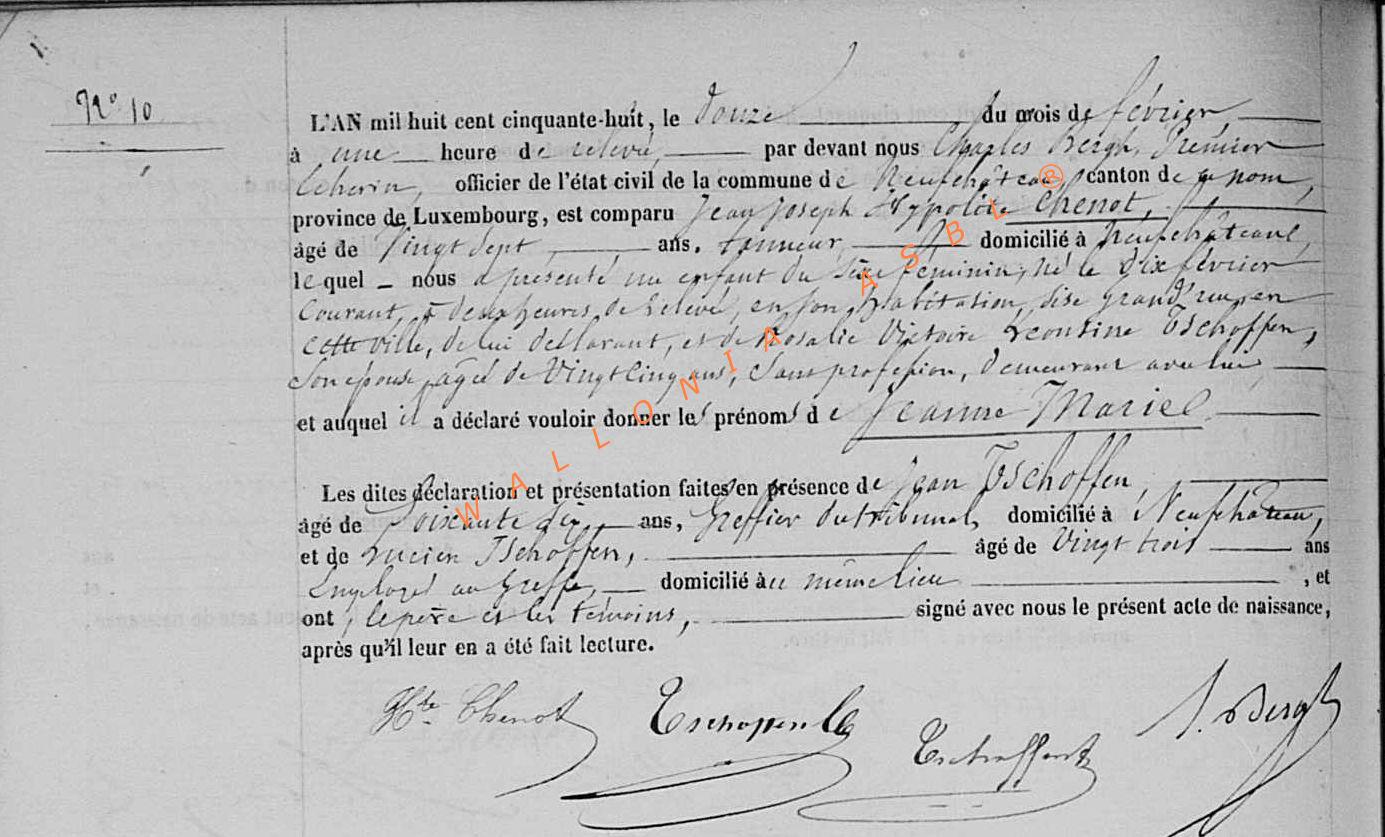 N° 10
L'AN mil huit cent cinquante-huit, le Douze du mois de février,
à une heure de relevée, par devant nous Charles Bergh, Premier
Echevin, officier de l'état civil de la commune de Neufchâteau, canton de ce nom,
province de Luxembourg, est comparu Jean Joseph Hypolite Chenot,
âgé de Vingt sept ans, tanneur, domicilié à Neufchâteau,
lequel nous a présenté un enfant du sexe féminin, né le dix février
Courant, à deux heures de relevée, en son habitation, sise grand'rue en
cette ville, de lui déclarant, et de Rosalie Victoire Léontine Tschoffen,
Son épouse, agée de Vingt Cinq ans, Sans profession, demeurant avec lui,
et auquel il a déclaré vouloir donner les prénoms de Jeanne Marie
Les dites déclaration et présentation faites en présence de Jean Tschoffen,
âgé de Soixante dix ans, Greffier du tribunal, domicilié à Neufchâteau,
et de Lucien Tschoffen, âgé de Vingt trois ans
Employé au Greffe, domicilié au même lieu , et
ont, le père et les témoins, signé avec nous le présent acte de naissance,
après qu'il leur en a été fait lecture.
Hte Chenot Tschoffen Tschoffen Bergh
WALLONIA ASBL ®